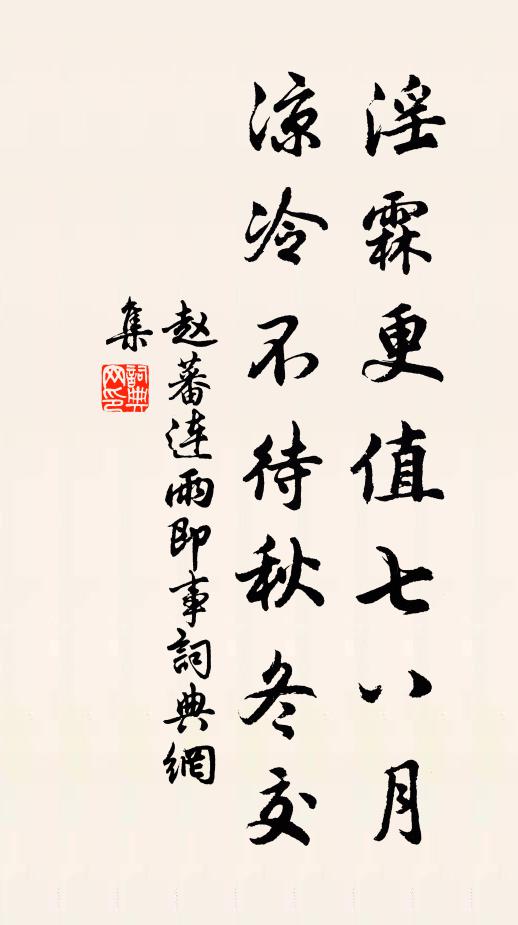 淫霖更值七八月
凉冷不待秋冬交
赵蕃连雨即事詞典網
集
詞典
网印